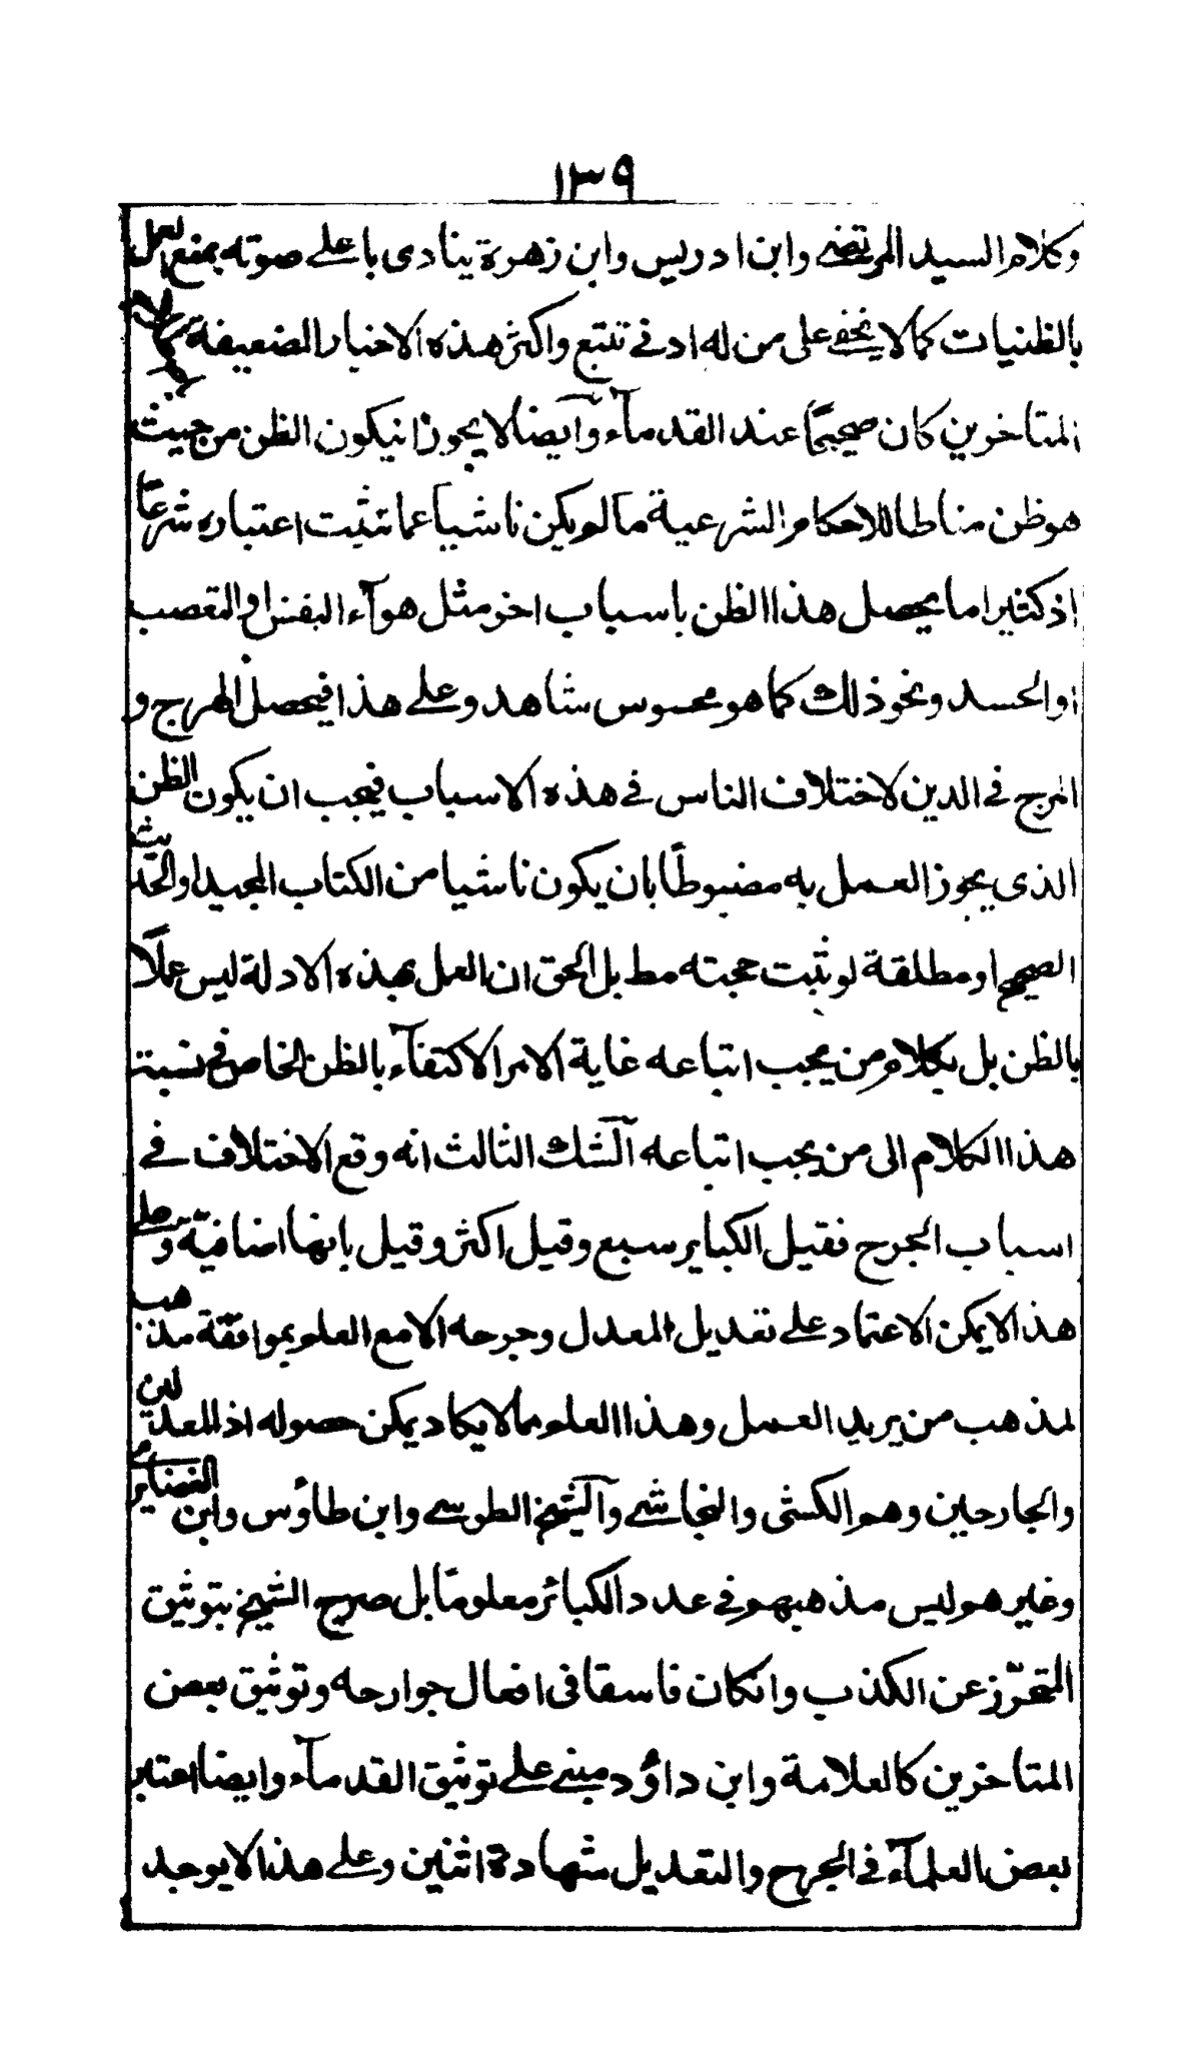 ١٣٩
وكلام السيد المرتضى وابن ادريس وابن زهرة ينادى باعلى صوته بمنع العمل
بالظنيات كما لا يخفى على من له ادنى تتبع واكثر هذه الاخبار الضعيفة
المتاخرين كان صحيحًا عند القدمآء وآيضا لا يجوز انيكون الظن من حيث
هو ظن مناطا للاحكام الشرعية مالم يكن ناشيا عما تثبت اعتباره شرعًا
اذ كثيرا ما يحصل هذا الظن باسباب اخر مثل هوآء النفس او التعصب
او الحسد ونحو ذلك كما هو محسوس شاهد وعلى هذا فيحصل الهرج و
المرج فى الدين لاختلاف الناس فى هذه الاسباب فيجب ان يكون الظن
الذى يجوز العمل به مضبوطًا بان يكون ناشيا من الكتاب المجيد او الحديث
الصحيح او مطلقة لو ثبت حجيته مط بل الحق ان العمل بهذه الادلة ليس عملًا
بالظن بل بكلام من يجب اتباعه غاية الامر الاكتفآء بالظن الخاص فى نسبة
هذا الكلام الى من يجب اتباعه آلشك الثالث انه وقع الاختلاف فى
اسباب الجرح فقيل الكباير سبع وقيل اكثر وقيل بانها اضافيّة وعلى
هذا لا يمكن الاعتماد على تعديل المعدل وجرحه الا مع العلم بموافقة مذهب
لمذهب من يريد العمل وهذا العلم مما لا يكاد يمكن حصوله اذ المعدلين
والجارحين وهم الكشى والنجاشى وآلشيخ الطوسى وابن طاؤس وابن الغضايرى
وغيرهم ليس مذهبهم فى عدد الكبائر معلومًا بل صرح الشيخ بتوثيق
المتحرّز عن الكذب وانكان فاسقا فى افعال جوارحه وتوثيق بعض
المتاخرين كالعلامة وابن داؤد مبنى على توثيق القدمآء وايضا اعتبر
بعض العلمآء فى الجرح والتعديل شهادة اثنين وعلى هذا لا يوجد